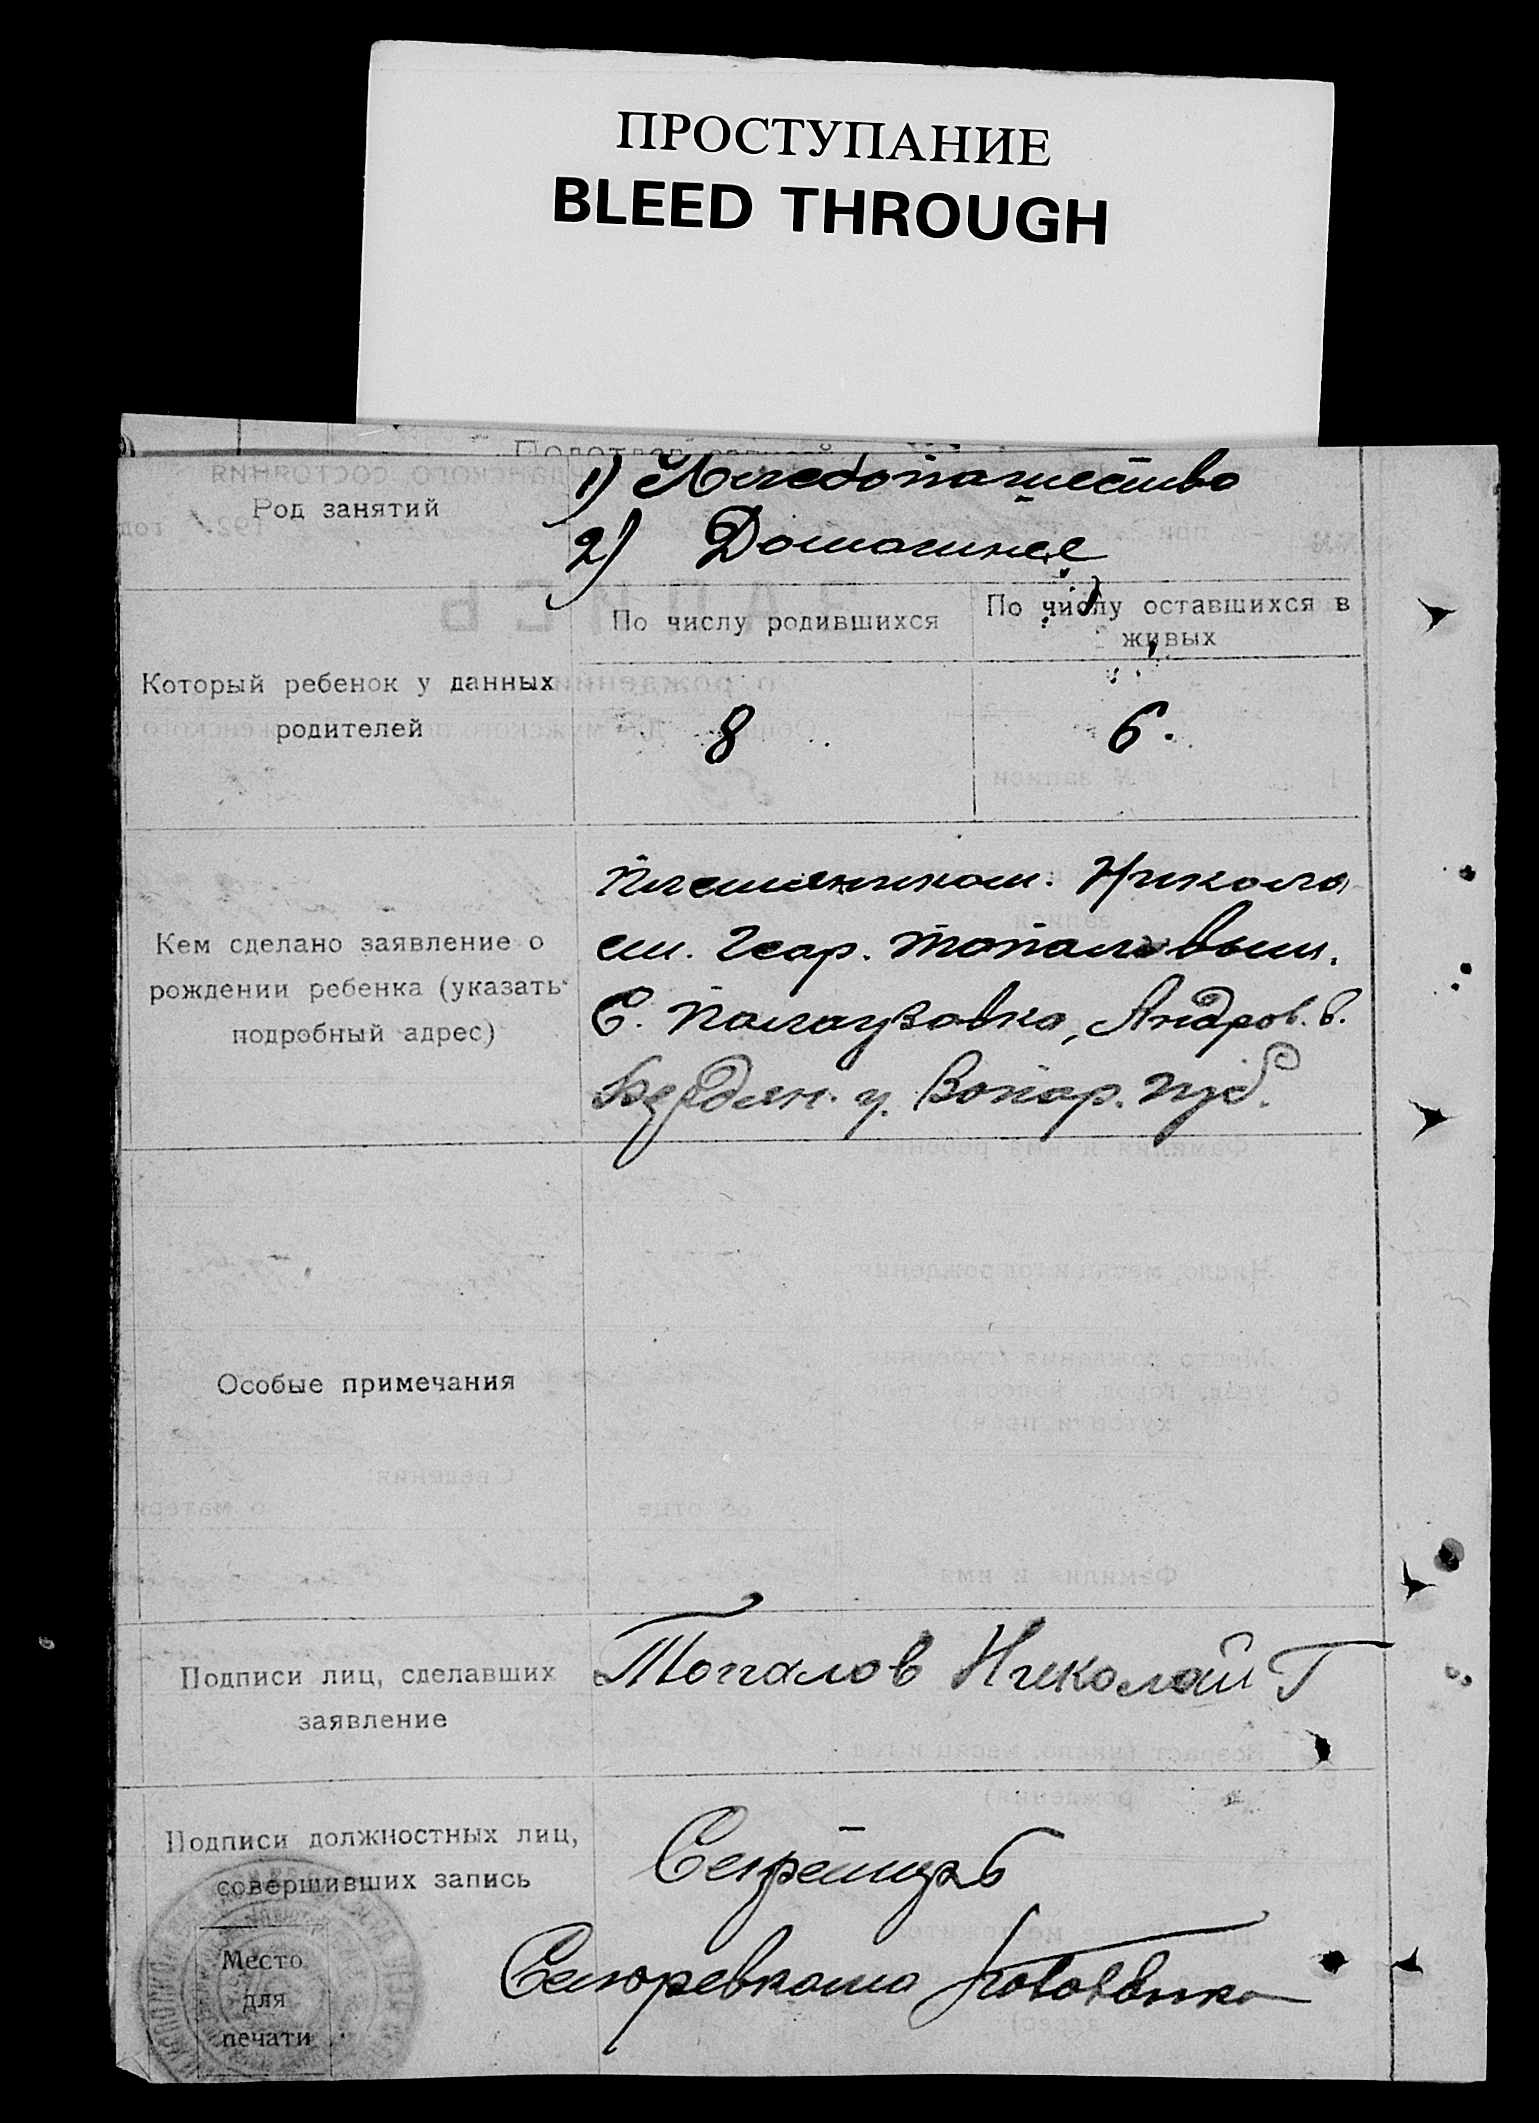 ПРОСТУПАНИЕ
BLEED THROUGH
Род занятий
1) Хлебопашество
2) Домашнее
Который ребенок у данных
родителей
По числу родившихся
По числу оставшихся в
живых
8
6.
Кем сделано заявление о
рождении ребенка (указать
подробный адрес)
племяником. Никола
ем. Геор. Топаловым.
С. Палаузовка, Андров. в.
Бердян. у. Запор. губ.
Особые примечания
Подписи лиц, сделавших
заявление
Топалов Николай Г
Подписи должностных лиц,
совершивших запись
Секретарь
Место
для
печати